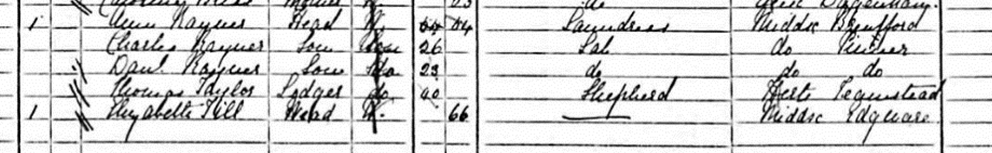 63 do
1 Ann Rayner Head W. 64 64 Laundress Middx Brentford
Charles Rayner Son Unm 26 Lab do Pinner
Danl. Rayner Son do 23 do do do
Thomas Taylor Lodger do 40 Shepherd Herts
1 Elizabeth Hill Head W. 66 — Middx Edgware